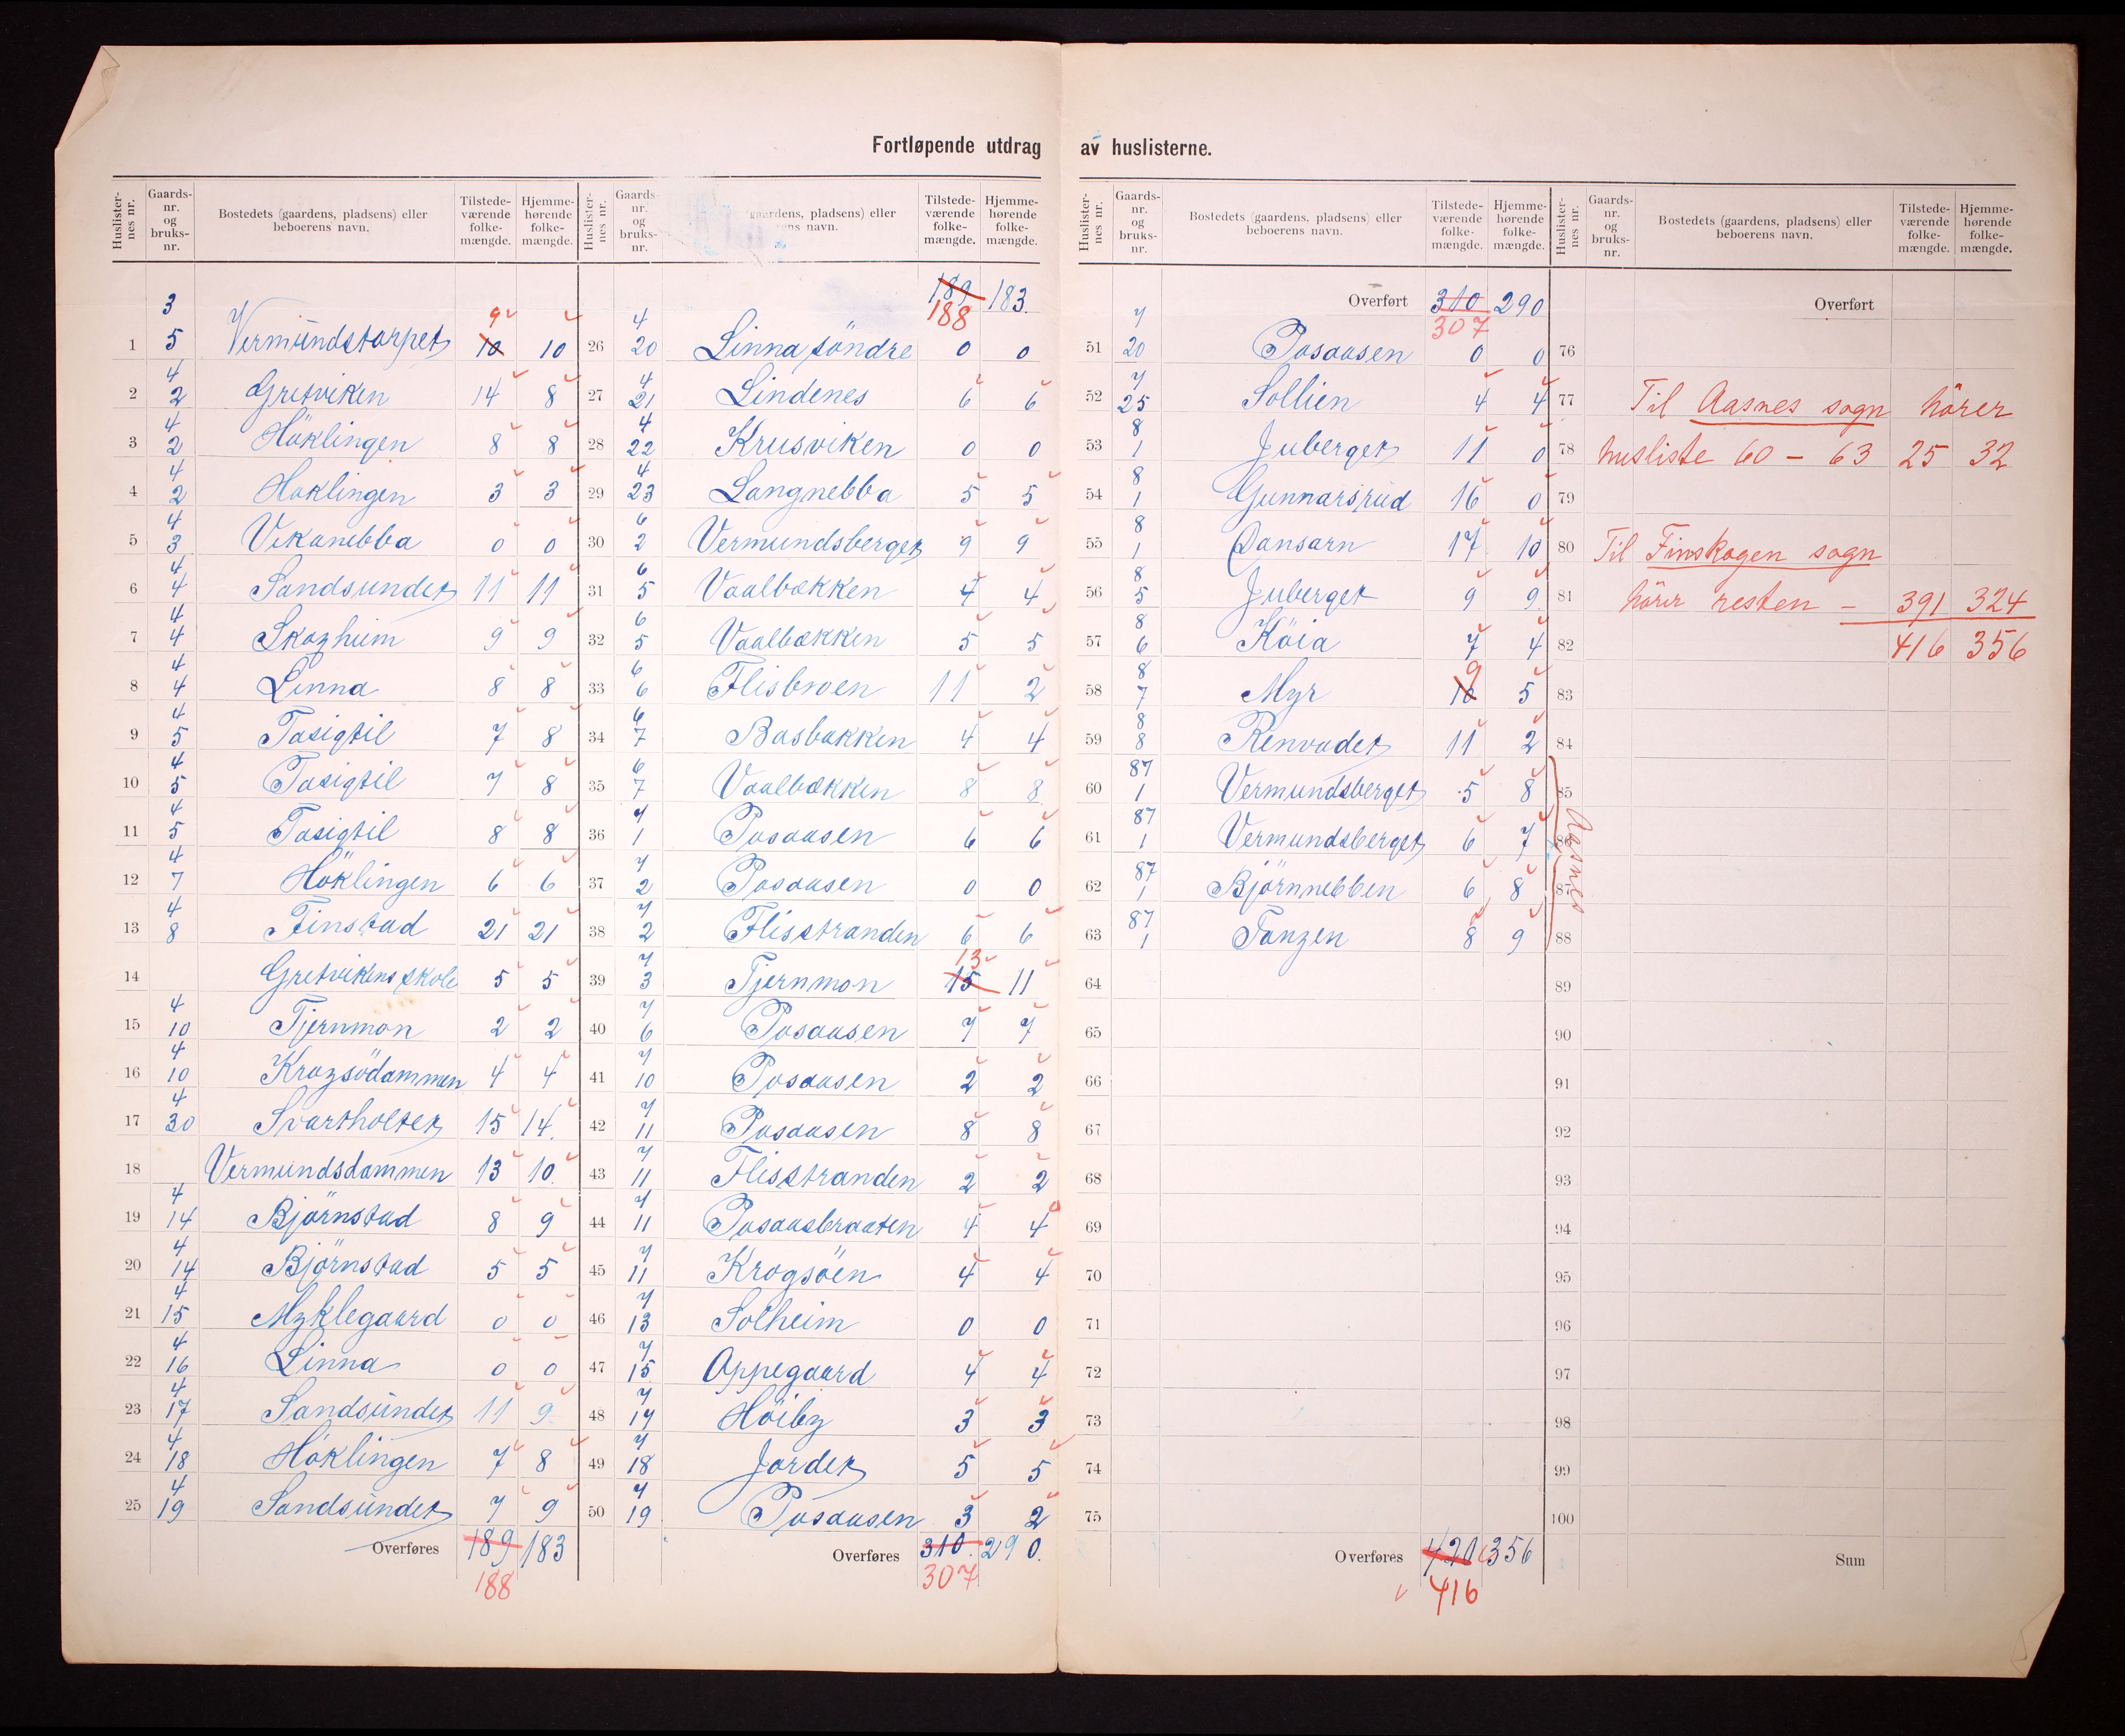 Fortløpende utdrag av huslisterne.
Huslisternes nr. Gaards-nr. og bruks-nr. Bostedets (gaardens, pladsens) eller beboerens navn. Tilstede-værende folke-mængde. Hjemme-hørende folke-mængde.
1 3 5 Vermundstorpet 10 9 10
2 4 2 Gretviken 14 8
3 4 2 Höklingen 8 8
4 4 2 Höklingen 3 3
5 4 3 Vikanebba 0 0
6 4 4 Sandsundet 11 11
7 4 4 Skogheim 9 9
8 4 4 Linna 8 8
9 4 5 Tasigtil 7 8
10 4 5 Tasigtil 7 8
11 4 5 Tasigtil 8 8
12 4 7 Höklingen 6 6
13 4 8 Finstad 21 21
14 Gretvikens skole 5 5
15 4 10 Tjernmon 2 2
16 4 10 Krogsödammen 4 4
17 4 30 Svartholtet 15 14
18 Vermundsdammen 13 10
19 4 14 Björnstad 8 9
20 4 14 Björnstad 5 5
21 4 15 Myklegaard 0 0
22 4 16 Linna 0 0
23 4 17 Sandsundet 11 9
24 4 18 Höklingen 7 8
25 4 19 Sandsundet 7 9
Overføres 189 183
188
Huslisternes nr. Gaards-nr. og bruks-nr. gaardens, pladsens) eller navn. Tilstede-værende folke-mængde. Hjemme-hørende folke-mængde.
189 183
188
26 4 20 Linna söndre 0 0
27 4 21 Lindenes 6 6
28 4 22 Krusviken 0 0
29 4 23 Langnebba 5 5
30 6 2 Vermundsberget 9 9
31 6 5 Vaalbækken 4 4
32 6 5 Vaalbækken 5 5
33 6 6 Flisbroen 11 2
34 6 7 Basbakken 4 4
35 6 7 Vaalbækken 8 8
36 7 1 Posaasen 6 6
37 7 2 Posaasen 0 0
38 7 2 Flisstranden 6 6
39 7 3 Tjernmon 15 13 11
40 7 6 Posaasen 7 7
41 7 10 Posaasen 2 2
42 7 11 Posaasen 8 8
43 7 11 Flisstranden 2 2
44 7 11 Posaasbraaten 4 4
45 7 11 Krogsöen 4 4
46 7 13 Solheim 0 0
47 7 15 Oppegaard 4 4
48 7 17 Höiby 3 3
49 7 18 Jordet 5 5
50 7 19 Posaasen 3 2
Overføres 310. 290.
307
Huslisternes nr. Gaards-nr. og bruks-nr. Bostedets (gaardens, pladsens) eller beboerens navn. Tilstede-værende folke-mængde. Hjemme-hørende folke-mængde.
Overført 310 290
307
51 7 20 Posaasen 0 0
52 7 25 Sollien 4 4
53 8 1 Juberget 11 0
54 8 1 Gunnarsrud 16 0
55 8 1 Dansarn 17 10
56 8 5 Juberget 9 9
57 8 6 Köia 7 4
58 8 7 Myr 10 9 5
59 8 8 Renvadet 11 2
60 87 1 Vermundsberget 5 8
61 87 1 Vermundsberget 6 7
62 87 1 Björnnebben 6 8
63 87 1 Tangen 8 9
64
65
66
67
68
69
70
71
72
73
74
75
Overføres 420 356
416
Huslisternes nr. Gaards-nr. og bruks-nr. Bostedets (gaardens, pladsens) eller beboerens navn. Tilstede-værende folke-mængde. Hjemme-hørende folke-mængde.
Overført
76
77 Til Aasnes sogn hörer
78 husliste 60 – 63 25 32
79
80 Til Finskogen sogn
81 hörer resten – 391 324
82 416 356
83
84
85
86
87
Aasnes
88
89
90
91
92
93
94
95
96
97
98
99
100
Sum